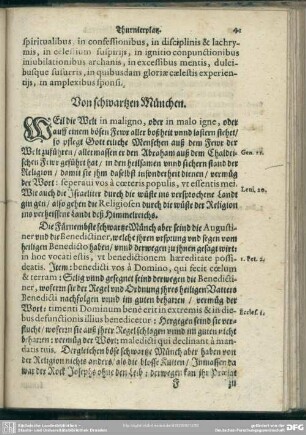 Thurnierplatz.
spiritualibus, in confessionibus, in disciplinis & lachry-
mis, in eclesium suspirijs, in ignitio conpunctionibus
iniubilationibus archanis, in excessibus mentis, dulci-
busque susurris, in quibusdam gloriæ cælestis experien-
tijs, in amplexibus sponsi.
Von schwartzen München.
WEil die Welt in maligno, oder in malo igne, oder
auff einem bösen Fewr aller boßheit vnd lastern stehet/
so pflegt Gott etliche Menschen auß dem Fewr der
Welt zuführen/ allermassen er den Abraham auß dem Chaldei-
schen Fewr geführt hat/ in den heilsamen vnd sichern stand der
Religion / damit sie ihm daselbst insonderheit dienen / vermüg
der Wort: seperaui vos à cœteris populis, vt essentis mei.
Wie auch die Israeliter durch die wüste ins versprochene Landt
gingen/ also gehen die Religiosen durch die wüste der Religion
ins verheissene Landt deß Himmelreichs.
Die Fürnembste schwartze Münch aber seind die Augusti-
ner vnd die Benedictiner, welche ihren vrsprung vnd segen vom
heiligen Benedicto haben/ vnnd derwegen zu ihnen gesagt wirdt:
in hoc vocati estis, vt benedictionem hæreditate possi-
deatis. Item: benedicti vos à Domino, qui fecit cœlum
& terram: Selig vnnd gesegnet seind derwegen die Benedicti-
ner, wofern sie der Regel vnd Ordnung ihres heiligen Vatters
Benedicti nachfolgen vnnd im guten beharren / vermüg der
Wort: timenti Dominum bene erit in extremis & in die-
bus defunctionis illius benedicetur: Hergegen seind sie ver-
flucht/ wofern sie auß ihrer Regel schlagen vnnd im guten nicht
beharren: vermüg der Wort: maledicti qui declinant à manda-
tis tuis. Dergleichen böse schwartze Münch aber haben von
der Religion nichts anders, als die blosse Kutten / Inmassen da
war der Rock Josephs ohne den Leib: derwegen kan ihr Prælat
F
zu
Gen. 11.
1. Pet. 3.
Eccles. 1.
Deutsche Forschungsgemeinschaft